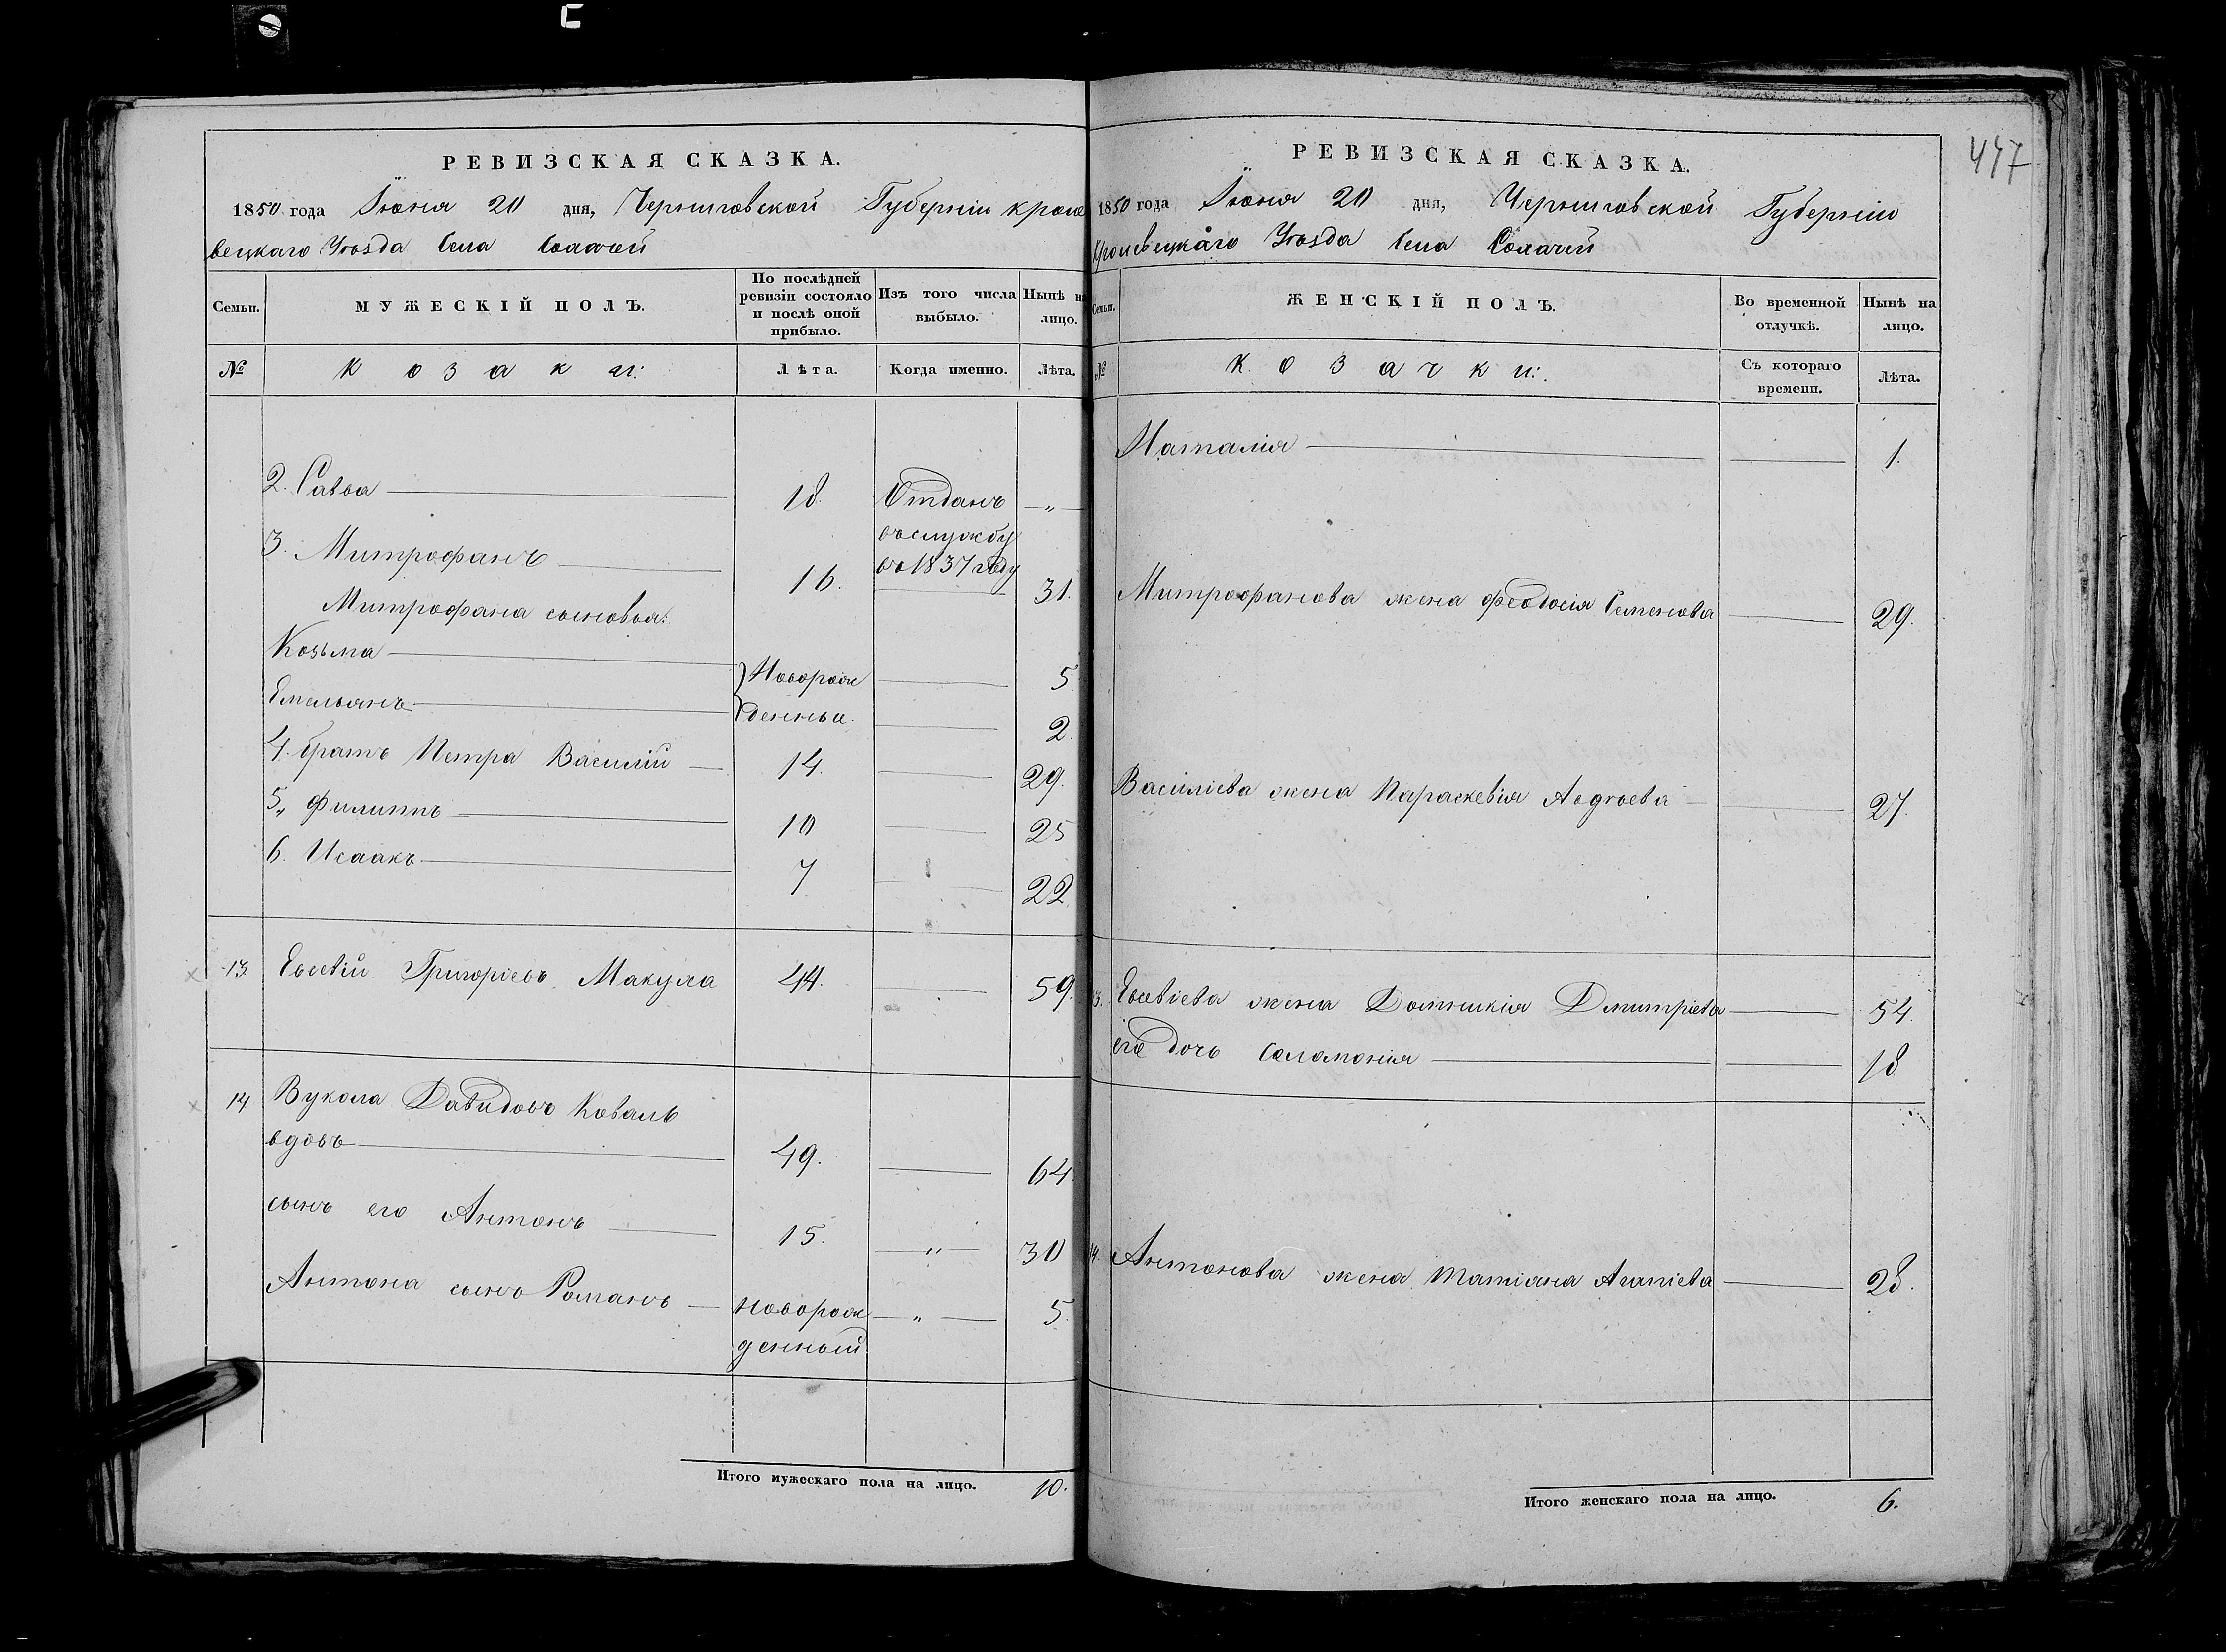 447
РЕВИЗСКАЯ СКАЗКА.
1850 года Іюня 20 дня, Черниговской Губерніи кроле
вецкаго Уѣзда Села
Семьи.
МУЖЕСКІЙ ПОЛЪ.
По послѣдней
ревизіи состояло
и послѣ оной
прибыло.
Изъ того числа
выбыло.
Нынѣ на
лицо.
№
козаки:
Лѣта.
Когда именно.
Лѣта.
2. Савва 18. Отданъ "
въ службу
въ 1837 году
3. Митрофанъ 16. 31.
Митрофана сыновья:
Козьма Новорож 5.
Емельянъ денныи. 2.
4. братъ Петра Василій 14. 29.
5 " Филиппъ 10 25
6. Исаакъ 7 22
13 Евсевій Григоріевъ Макуха 44. 59.
14 Вукола Давидовъ Коваль
вдовъ 49. 64.
сынъ его Антонъ 15. " 30
Антона сынъ Романъ новорож " 5.
денный
Итого мужескаго пола на лицо. 10.
РЕВИЗСКАЯ СКАЗКА.
1850 года Іюня 20 дня, Черниговской Губерніи
Кролевецкаго Уѣзда Села
Семьи.
ЖЕНСКІЙ ПОЛЪ.
Во временной
отлучкѣ.
Нынѣ на
лицо.
№
козачки:
Съ котораго
времени.
Лѣта.
Наталія 1.
Митрофанова жена Феодосія Семенова 29.
Василіева жена Параскевія Авдѣева 27.
13. Евсевіева жена Домникія Дмитріева 54.
его дочь Соломонія 18
14. Антонова жена Татіяна 28.
Итого женскаго пола на лицо. 6.